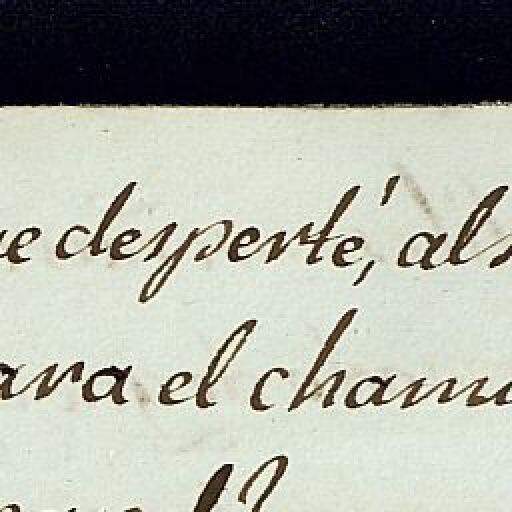 ue desperté, al
ara el cham